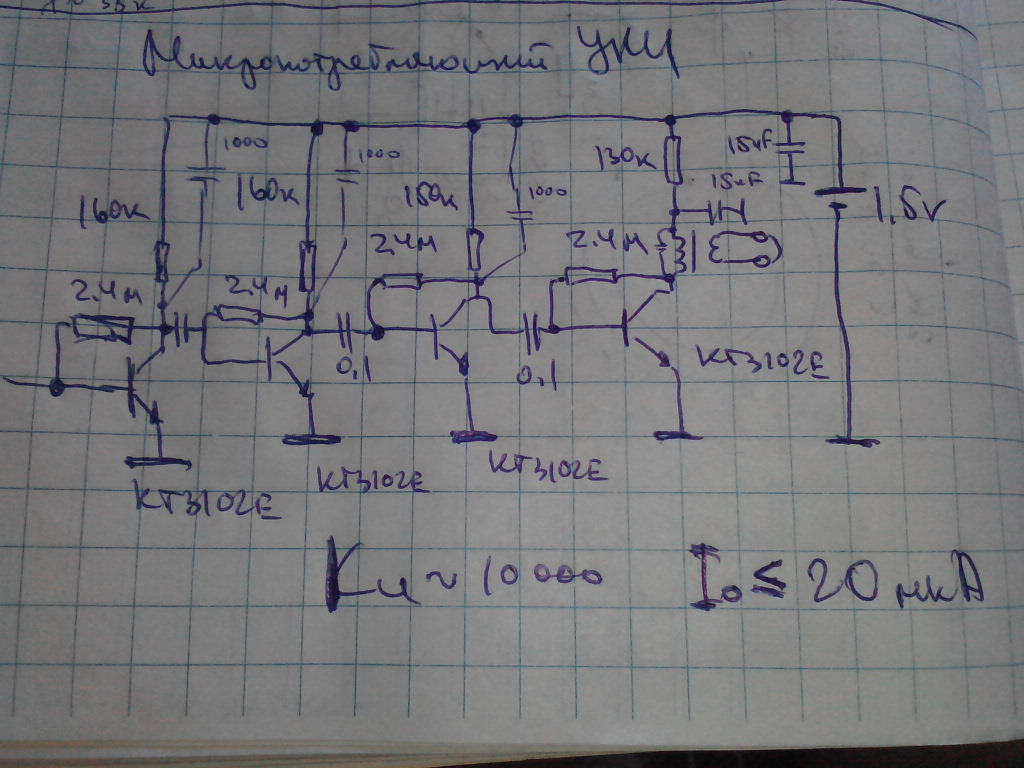 Микропотребляющий УНЧ
1000
1000
130к
15uF
160к
160к
150к
1000
15uF
1.5v
2.4м
2.4м
2.4м
2.4м
0,1
0,1
КТ3102Е
КТ3102Е
КТ3102Е
КТ3102Е
Ku ~ 10 000
I₀ ≤ 20 мкА